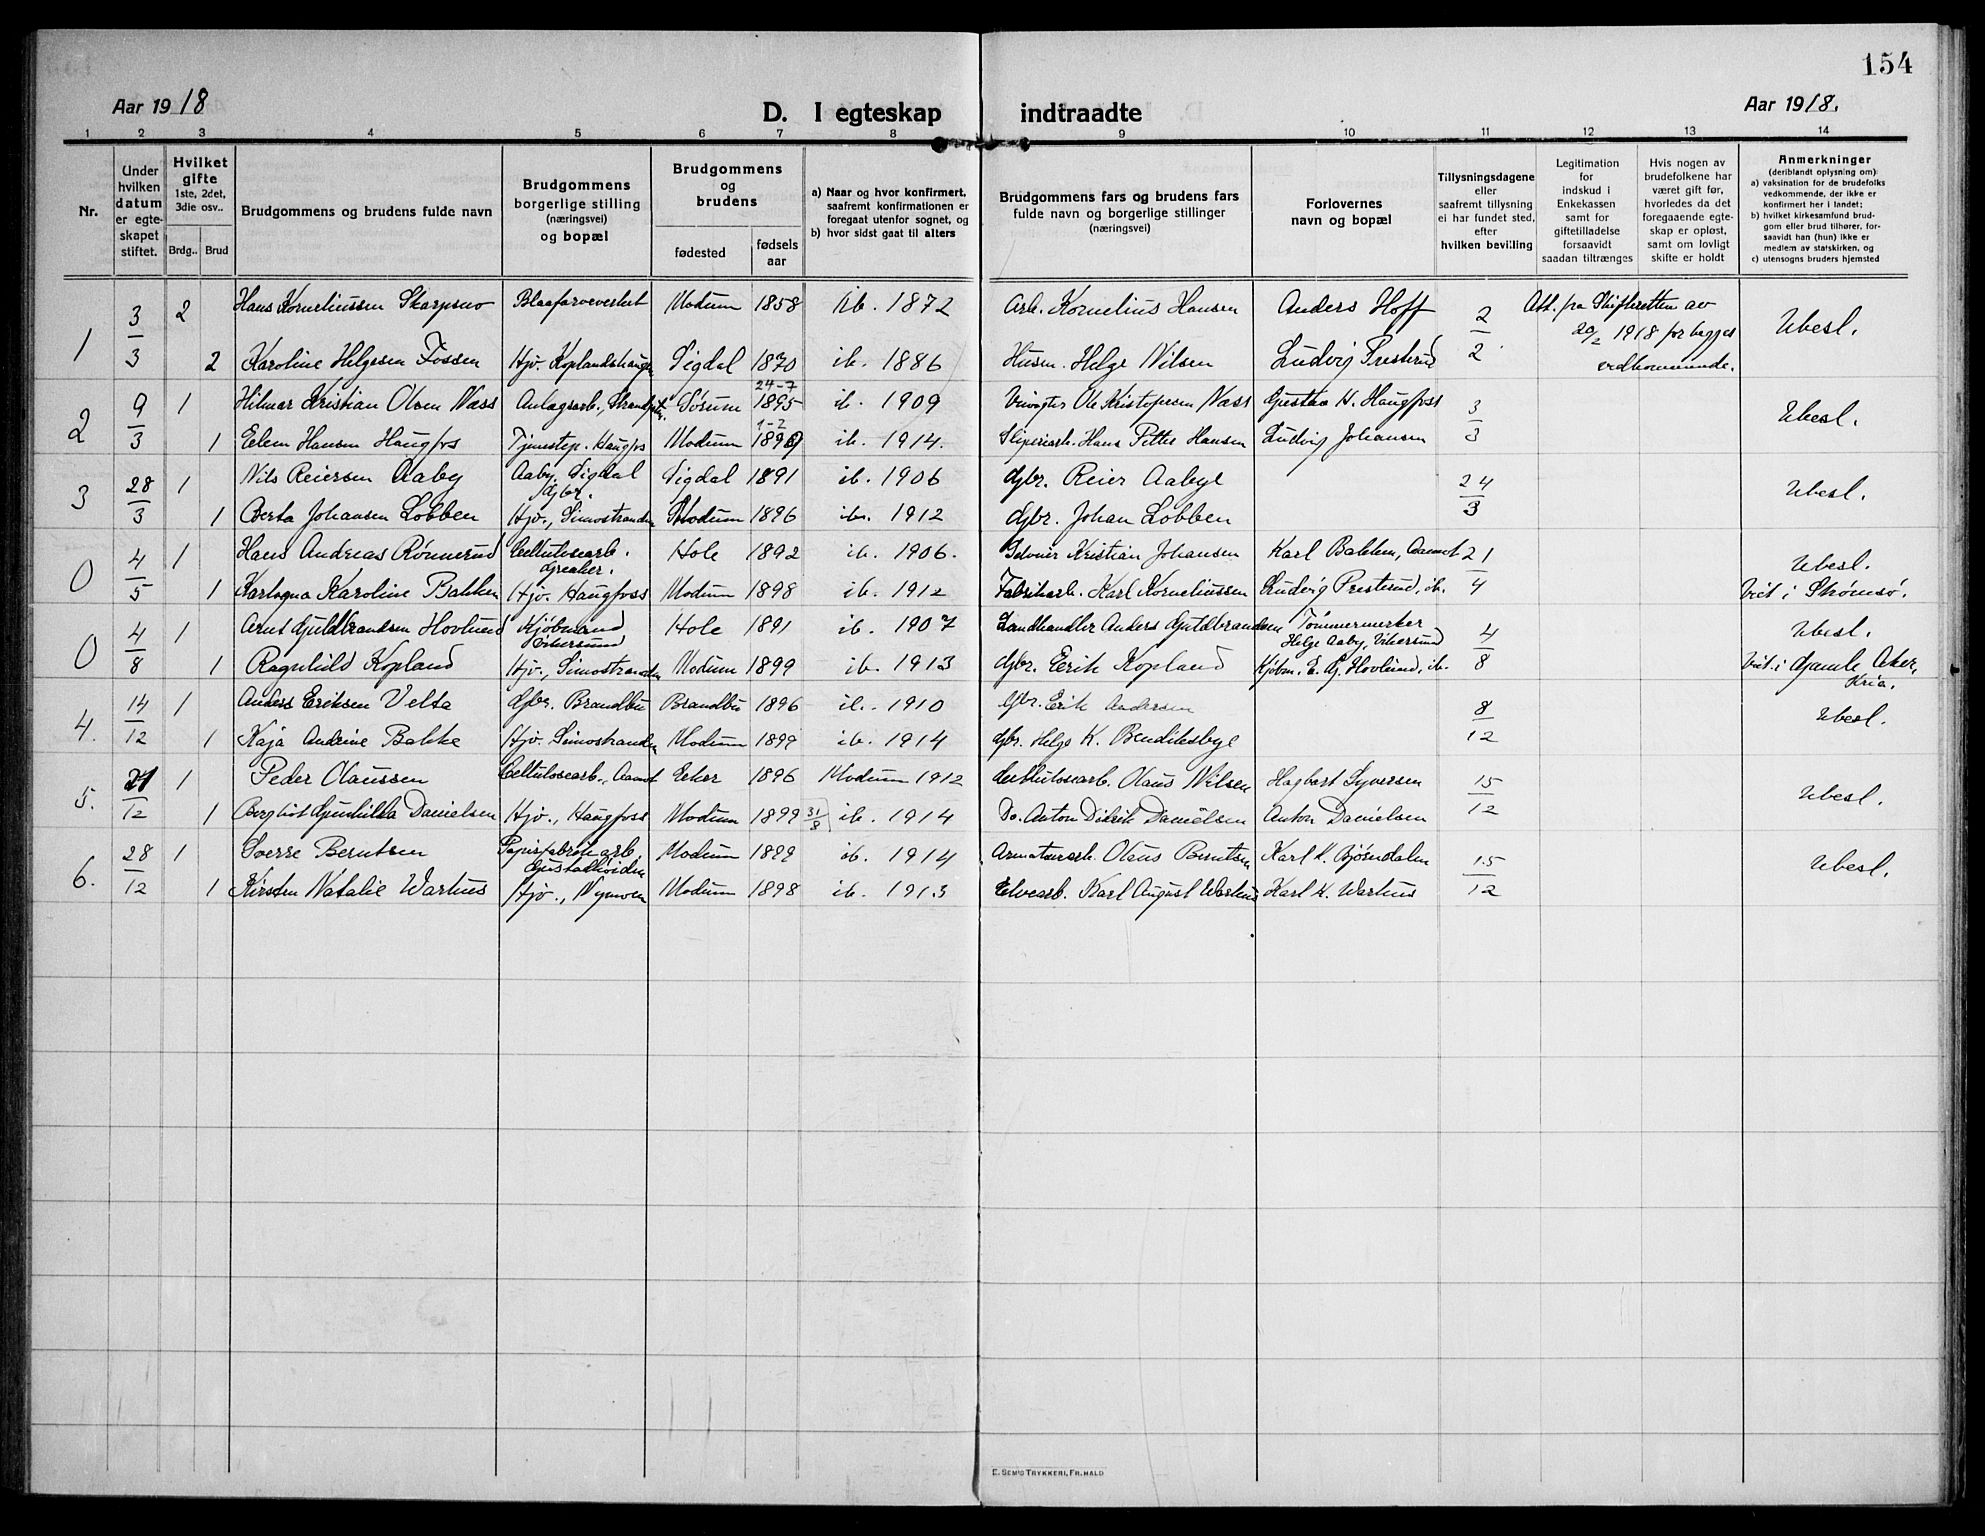 154
Aar 1918
D. I egteskap indtraadte
Aar 1918.
1 2 3 4 5 6 7 8 9 10 11 12 13 14
Nr.
Under hvilken datum er egteskapet stiftet.
Hvilket gifte 1ste, 2det, 3die osv..
Brdg.. Brud
Brudgommens og brudens fulde navn
Brudgommens borgerlige stilling (næringsvei) og bopæl
Brudgommens og brudens
fødested
fødsels aar
a) Naar og hvor konfirmert, saafremt konfirmationen er foregaat utenfor sognet, og
b) hvor sidst gaat til alters
Brudgommens fars og brudens fars fulde navn og borgerlige stillinger (næringsvei)
Forlovernes navn og bopæl
Tillysningsdagene eller saafremt tillysning ei har fundet sted, efter hvilken bevilling
Legitimation for indskud i Enkekassen samt for giftetilladelse forsaavidt saadan tiltrænges
Hvis nogen av brudefolkene har været gift før, hvorledes da det foregaaende egteskap er opløst, samt om lovligt skifte er holdt
Anmerkninger (deriblandt oplysning om):
a) vaksination for de brudefolks vedkommende, der ikke er konfirmert her i landet;
b) hvilket kirkesamfund brudgom eller brud tilhører, forsaavidt han (hun) ikke er medlem av statskirken, og
c) utensogns bruders hjemsted
1 3/3 2 Hans Korneliussen Skarpsno Blaafarveverket Modum 1858 ib. 1872 Arb. Kornelius Hansen Anders Hoff 2/2 Att. fra Skifteretten av 20/2 1918 for begges vedkommende. Ubesl.
2 Karoline Helgesen Fossen Hjv. Koplandshaugen Sigdal 1870 ib. 1886 Husm. Helge Nilsen Ludvig Presterud
2 9/3 1 Hilmar Kristian Olsen Næss Anlagsarb. Sørum 24-7 1895 ib. 1909 Veivogter Ole Kristofersen Næss Gustav H. Haugfoss 3/3 Ubesl.
1 Ellen Hansen Haugfos Tjenestep. Haugfos Modum 1-2 1899 ib. 1914. Sliperiarb. Hans Petter Hansen Ludvig Johansen
3 28/3 1 Nils Reiersen Aaby Aaby, Sigdal Gbr. Sigdal 1891 ib. 1906 Gbr. Reier Aabye 24/3 Ubesl.
1 Berta Johansen Lobben Hjv., Simostranden Modum 1896 ib. 1912 Gbr. Johan Lobben
0 4/5 1 Hans Andreas Rønnerud Cellulosearb. Greaker. Hole 1892 ib. 1906. Kristian Johansen Karl Bakken, Aamot 21/4 Ubesl.
1 Karlagna Karoline Bakken Hjv. Haugfoss Modum 1898 ib. 1912 Fabrikarb. Karl Korneliussen Ludvig Presterud, ib. Viet i Strømsø.
0 4/8 1 Arnt Guldbrandsen Hovlund Kjøbmand Vikersund Hole 1891 ib. 1907 Landhandler Anders Guldbrandsen Tømmermerker Helge Aaby, Vikersund 4/8 Ubesl.
1 Ragnhild Kopland Hjv., Simostranden Modum 1899 ib. 1913 Gbr. Eerik Kopland Kjøbm. E. Ag. Hovlund, ib. Viet i Gamle Aker, Kria.
4. 14/12 1 Anders Eriksen Velta Gbr. Brandbu Brandbu 1896 ib. 1910 Gbr. Erik Andersen 8/12 Ubesl.
1 Kaja Andrine Bakke Hjv. Simostranden Modum 1899 ib. 1914 Gbr. Helge K. Bendiksbye
5. 21/12 1 Peder Olaussen Cellulosearb., Aamot Eeker 1896 Modum 1912 Cellulosearb. Olaus Nilsen Hagbart Syversen 15/12 Ubesl.
1 Bergliot Gunhilda Danielsen Hjv., Haugfoss Modum 1899 31/8 ib. 1914 Do. Anton Didrik Danielsen Anton Danielsen
6. 28/12 1 Sverre Berntsen Papirfabrikarb. Gustadkroiden Modum 1899 ib. 1914 Armaturarb. Olaus Berntsen Karl K. Bjørndalen 15/12 Ubesl.
1 Kirsten Natalie Wartnes Hjv., Nymoen Modum 1898 ib. 1913 Elvearb. Karl August Wartnes Karl K. Wartnes
E. SEM'S TRYKKERI, FR.HALD